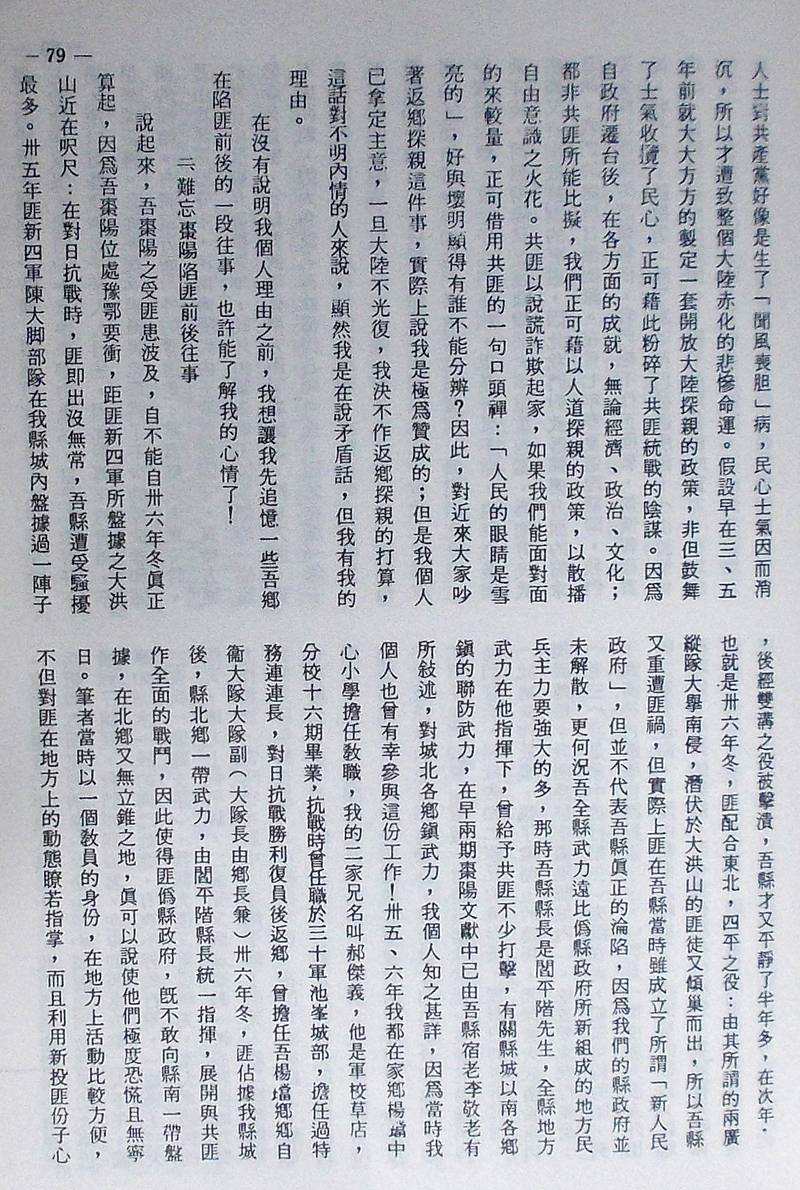 — 79 —
人士對共產黨好像是生了「聞風喪胆」病，民心士氣因而消
沉，所以才遭致整個大陸赤化的悲慘命運。假設早在三、五
年前就大大方方的製定一套開放大陸探親的政策，非但鼓舞
了士氣收攬了民心，正可藉此粉碎了共匪統戰的陰謀。因爲
自政府遷台後，在各方面的成就，無論經濟、政治、文化；
都非共匪所能比擬，我們正可藉以人道探親的政策，以散播
自由意識之火花。共匪以說謊詐欺起家，如果我們能面對面
的來較量，正可借用共匪的一句口頭禪：「人民的眼睛是雪
亮的」，好與壞明顯得有誰不能分辨？因此，對近來大家吵
著返鄉探親這件事，實際上說我是極爲贊成的；但是我個人
已拿定主意，一旦大陸不光復，我決不作返鄉探親的打算，
這話對不明內情的人來說，顯然我是在說矛盾話，但我有我的
理由。
在沒有說明我個人理由之前，我想讓我先追憶一些吾鄉
在陷匪前後的一段往事，也許能了解我的心情了！
二難忘棗陽陷匪前後往事
說起來，吾棗陽之受匪患波及，自不能自卅六年冬眞正
算起，因爲吾棗陽位處豫鄂要衝，距匪新四軍所盤據之大洪
山近在呎尺：在對日抗戰時，匪即出沒無常，吾縣遭受騷擾
最多。卅五年匪新四軍陳大脚部隊在我縣城內盤據過一陣子
，後經雙溝之役被擊潰，吾縣才又平靜了半年多，在次年．
也就是卅六年冬，匪配合東北，四平之役：由其所謂的兩廣
縱隊大舉南侵，潛伏於大洪山的匪徒又傾巢而出，所以吾縣
又重遭匪禍，但實際上匪在吾縣當時雖成立了所謂「新人民
政府」，但並不代表吾縣眞正的淪陷，因爲我們的縣政府並
未解散，更何況吾全縣武力遠比僞縣政府所新組成的地方民
兵主力要強大的多，那時吾縣縣長是閻平階先生，全縣地方
武力在他指揮下，曾給予共匪不少打擊，有關縣城以南各鄉
鎮的聯防武力，在早兩期棗陽文獻中已由吾縣宿老李敬老有
所敍述，對城北各鄉鎮武力，我個人知之甚詳，因爲當時我
個人也曾有幸參與這份工作！卅五、六年我都在家鄉楊壋中
心小學擔任教職，我的二家兄名叫郝傑義，他是軍校草店，
分校十六期畢業，抗戰時曾任職於三十軍池峯城部，擔任過特
務連連長，對日抗戰勝利復員後返鄉，曾擔任吾楊壋鄉鄉自
衞大隊大隊副（大隊長由鄉長兼）卅六年冬，匪佔據我縣城
後，縣北鄉一帶武力，由閻平階縣長統一指揮，展開與共匪
作全面的戰鬥，因此使得匪僞縣政府，旣不敢向縣南一帶盤
據，在北鄉又無立錐之地，眞可以說使他們極度恐慌且無寧
日。筆者當時以一個教員的身份，在地方上活動比較方便，
不但對匪在地方上的動態瞭若指掌，而且利用新投匪份子心